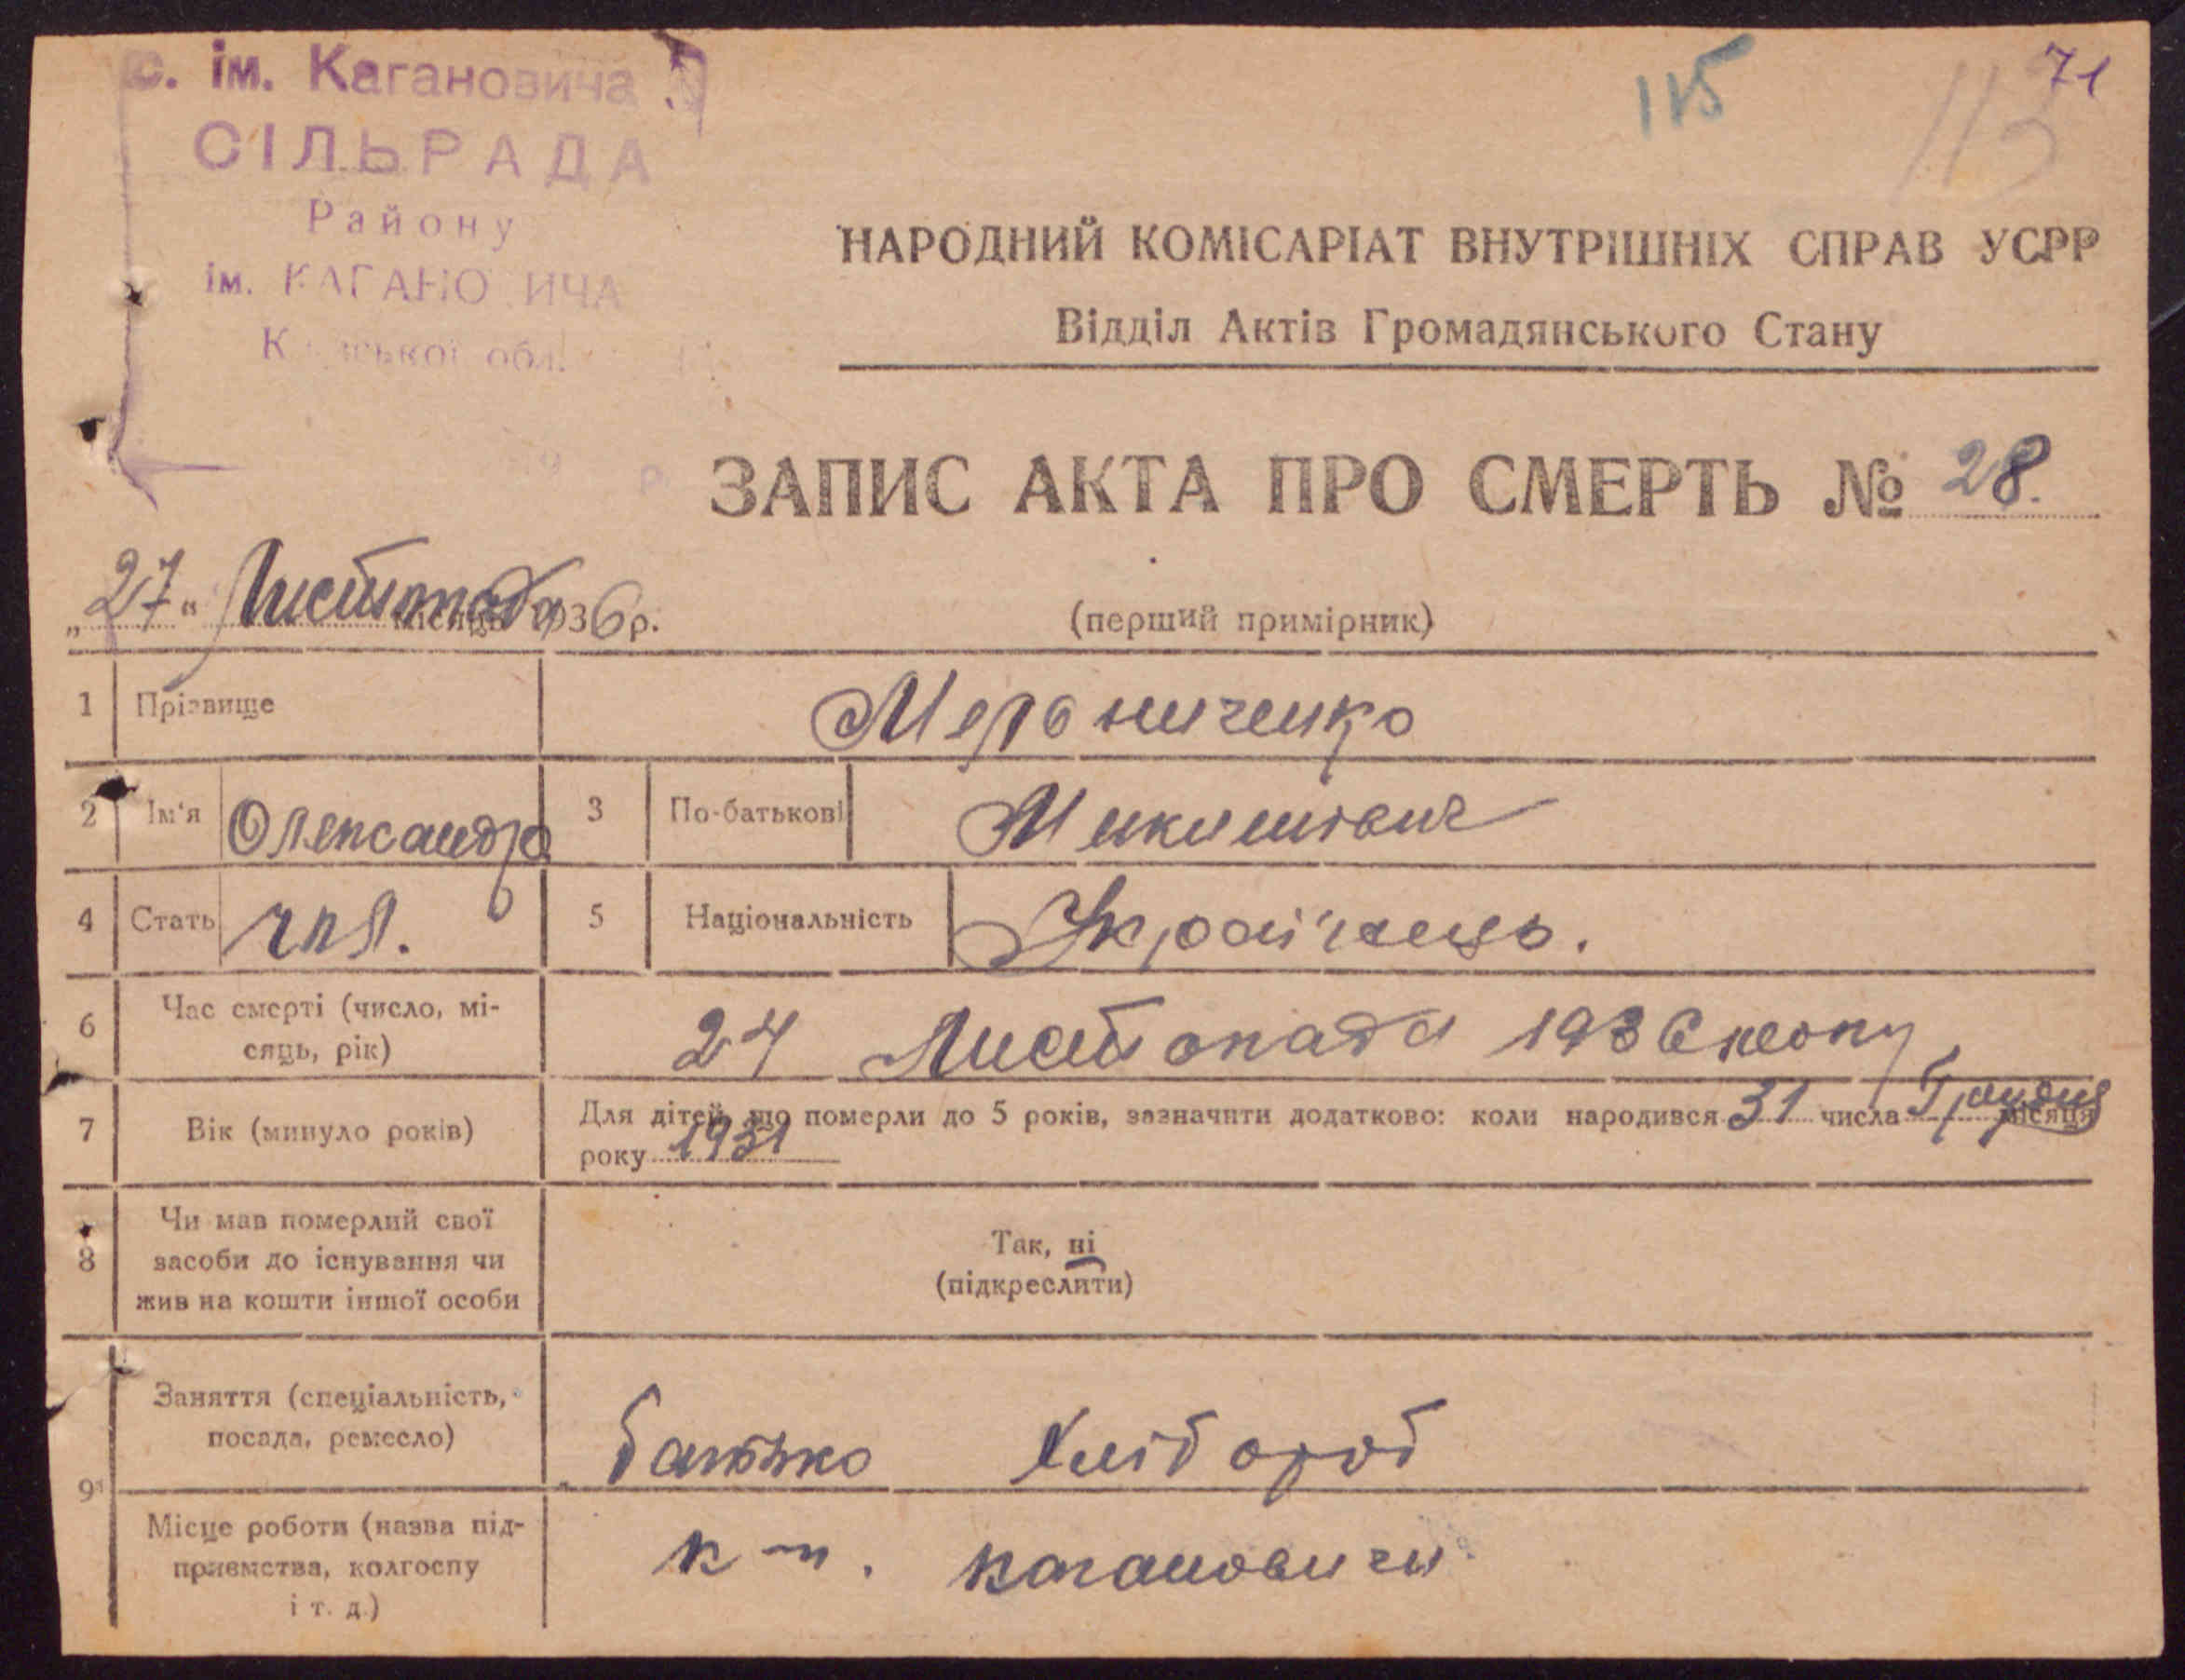 с. ім. Кагановича
СІЛЬРАДА
Району
ім. КАГАНОВИЧА
обл.
115
71
113
НАРОДНИЙ КОМІСАРІАТ ВНУТРІШНІХ СПРАВ УСРР
Відділ Актів Громадянського Стану
ЗАПИС АКТА ПРО СМЕРТЬ № 28.
„27“ Листопада місяця 1936 р.
(перший примірник)
1 Прізвище Мельниченко
2 Ім'я Олександр 3 По-батькові
4 Стать чол. 5 Національність Українець.
6 Час смерті (число, мі-
сяць, рік) 24 Листопада 1936
7 Вік (минуло років) Для дітей, що померли до 5 років, зазначити додатково: коли народився 31 числа Грудня місяця
року 1931
8 Чи мав померлий свої
засоби до існування чи
жив на кошти іншої особи
Так, ні
(підкреслити)
9 Заняття (спеціальність,
посада, ремесло) батько хлібороб
Місце роботи (назва під-
приємства, колгоспу
і т. д.) к-п. кагановичи